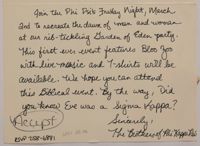 Join the Phi Psi's Friday Night, March
2nd to recreate the dawn of man and woman
at our rib-tickling Garden of Eden party.
This first ever event features Bloo Gos
with live music and T-shirts will be
available. We hope you can attend
this Biblical event. By the way, Did
you know? Eve was a Sigma Kappa?
Sincerely,
The Brothers of Phi Kappa Psi
RSVP 258-6881